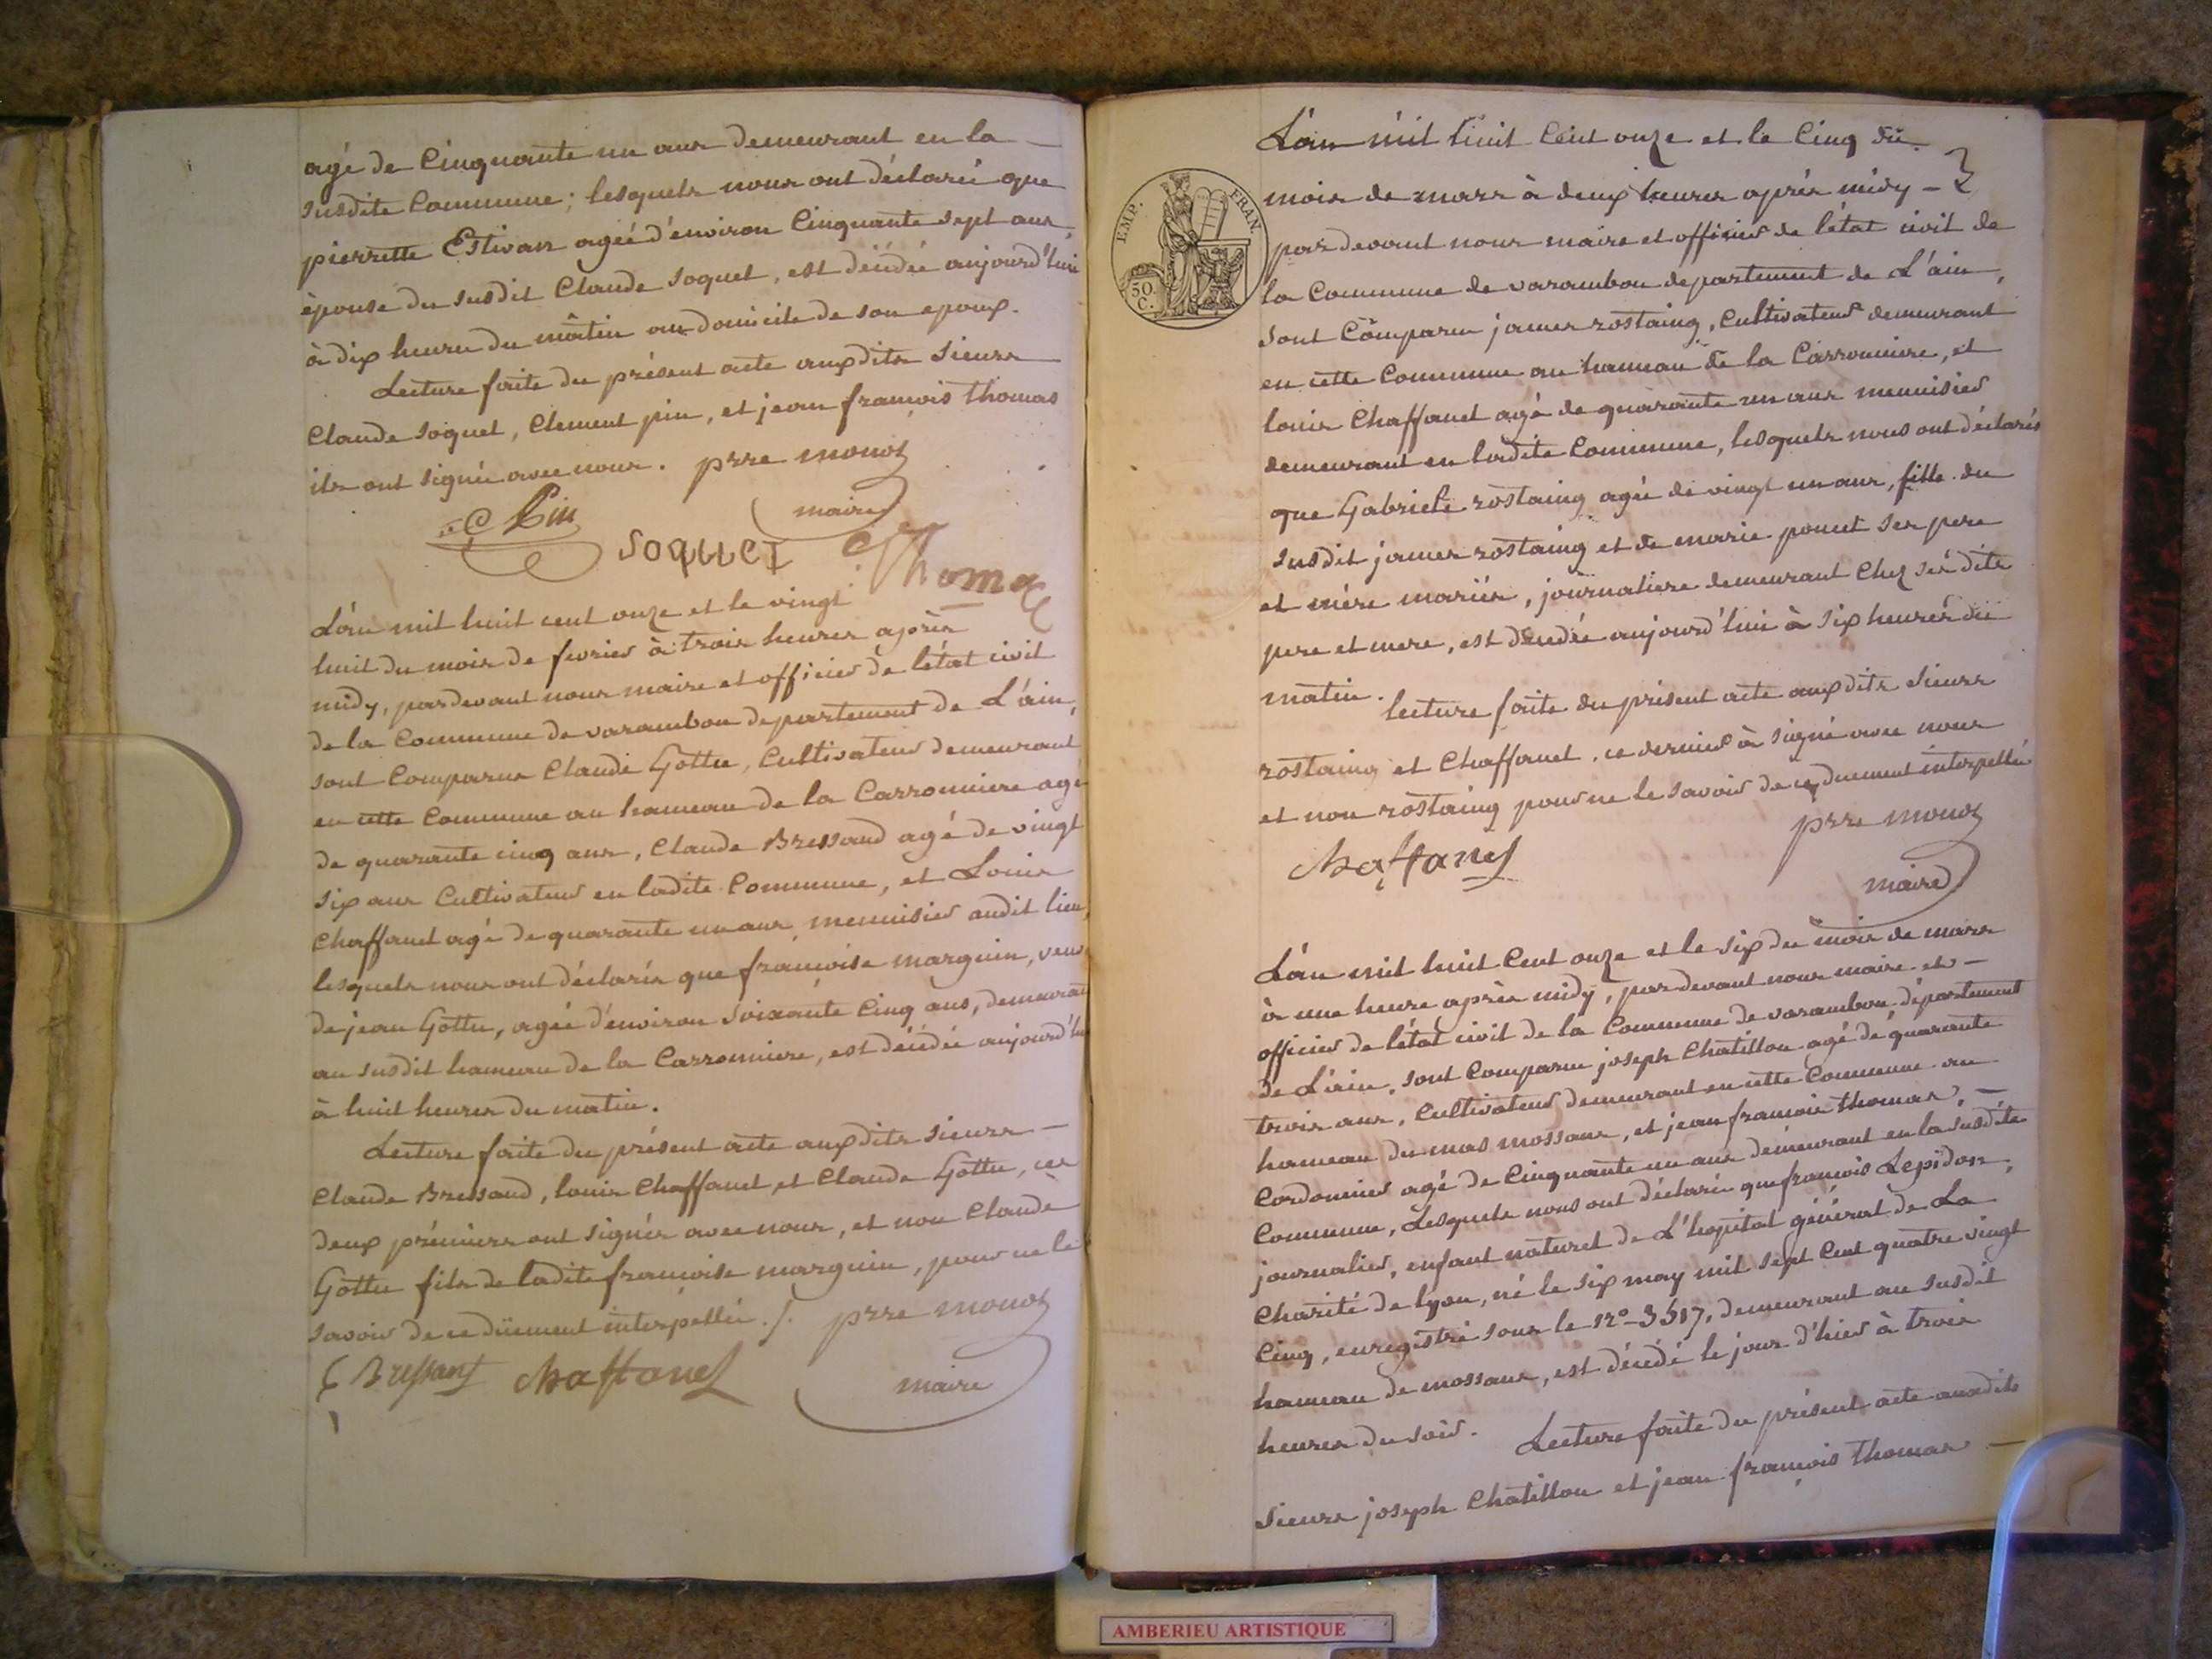 agé de Cinquante un ans demeurant en la —
susdite Commune; lesquels nous ont déclaré que
pierrette Estivan agée d'environ Cinquante sept ans,
épouse du susdit Claude soquet, est décédée aujourd'hui
à dix heures du mâtin au domicile de son epoux.
Lecture faite du présent acte auxdits sieurs
Claude soquet, Clement pin, et jean françois thomas
ils ont signés avec nous. prre monot
maire
C Pin
soquet
Thomas
L'an mil huit cent onze et le vingt
huit du mois de fevrier à trois heures après
midy, pardevant nous maire et officier de l'état civil
de la Commune de varambon departement de L'ain,
sont Comparus Claude Gottu, Cultivateur demeurant
en cette Commune au hameau de la Carronniere agé
de quarante cinq ans, Claude Bressand agé de vingt
six ans Cultivateur en ladite Commune, et Louis
Chaffanet agé de quarante un ans, menuisier audit lieu,
lesquels nous ont déclarés que françoise marguin, veuve
de jean Gottu, agée d'environ soixante Cinq ans, demeurant
au susdit hameau de la Carronniere, est décédée aujourd'hui
à huit heures du matin.
Lecture faite du présent acte auxdits sieurs —
Claude Bressand, louis Chaffanet, et Claude Gottu, ces
deux prémiers ont signés avec nous, et non Claude
Gottu fils de ladite françoise marguin, pour ne le
savoir de ce dûement interpellé ./. prre monot
maire
C Bressant chaffanel
L'an mil huit Cent onze et le Cinq du
mois de mars à deux heures aprés midy —
EMP. FRAN.
50. C.
pardevant nous maire et officier de l'état civil de
la Commune de varambon departement de L'ain,
sont Comparu james rostaing, Cultivateur demeurant
en cette Commune au hameau de la Carronniere, et
louis Chaffanet agé de quarante un ans menuisier
demeurant en ladite Commune, lesquels nous ont déclarés
que Gabriele rostaing agée de vingt un ans, fille du
susdit james rostaing et de marie poncet ses pere
et mére mariés, journaliere demeurant Chez ses dits
pere et mere, est décédée aujourd'hui à six heures du
matin. lecture faite du présent acte auxdits sieurs
rostaing et Chaffanet, ce dernier à signé avec nous
et non rostaing pour ne le savoir de ce duement interpellé
prre monot
maire
chaffanel
L'an mil huit Cent onze et le six du mois de mars
à une heure après midy, pardevant nous maire et —
officier de l'état civil de la Commune de varambon département
de L'ain, sont Comparu joseph Chatillon agé de quarante
trois ans, Cultivateur demeurant en cette Commune au
hameau du mas mossans, et jean françois thomas, —
Cordonnier agé de Cinquante un ans demeurant en la susdite
Commune, Lesquels nous ont déclaré que françois Lepidor,
journalier, enfant naturel de L'hopital général de La
Charité de lyon, né le six may mil sept Cent quatre vingt
Cinq, enregistré sous le n.º 3517, demeurant au susdit
hameau de mossans, est décédé le jour d'hier à trois
heures du soir. Lecture faite du présent acte auxdits
sieurs joseph Chatillon et jean françois thomas —
AMBERIEU ARTISTIQUE